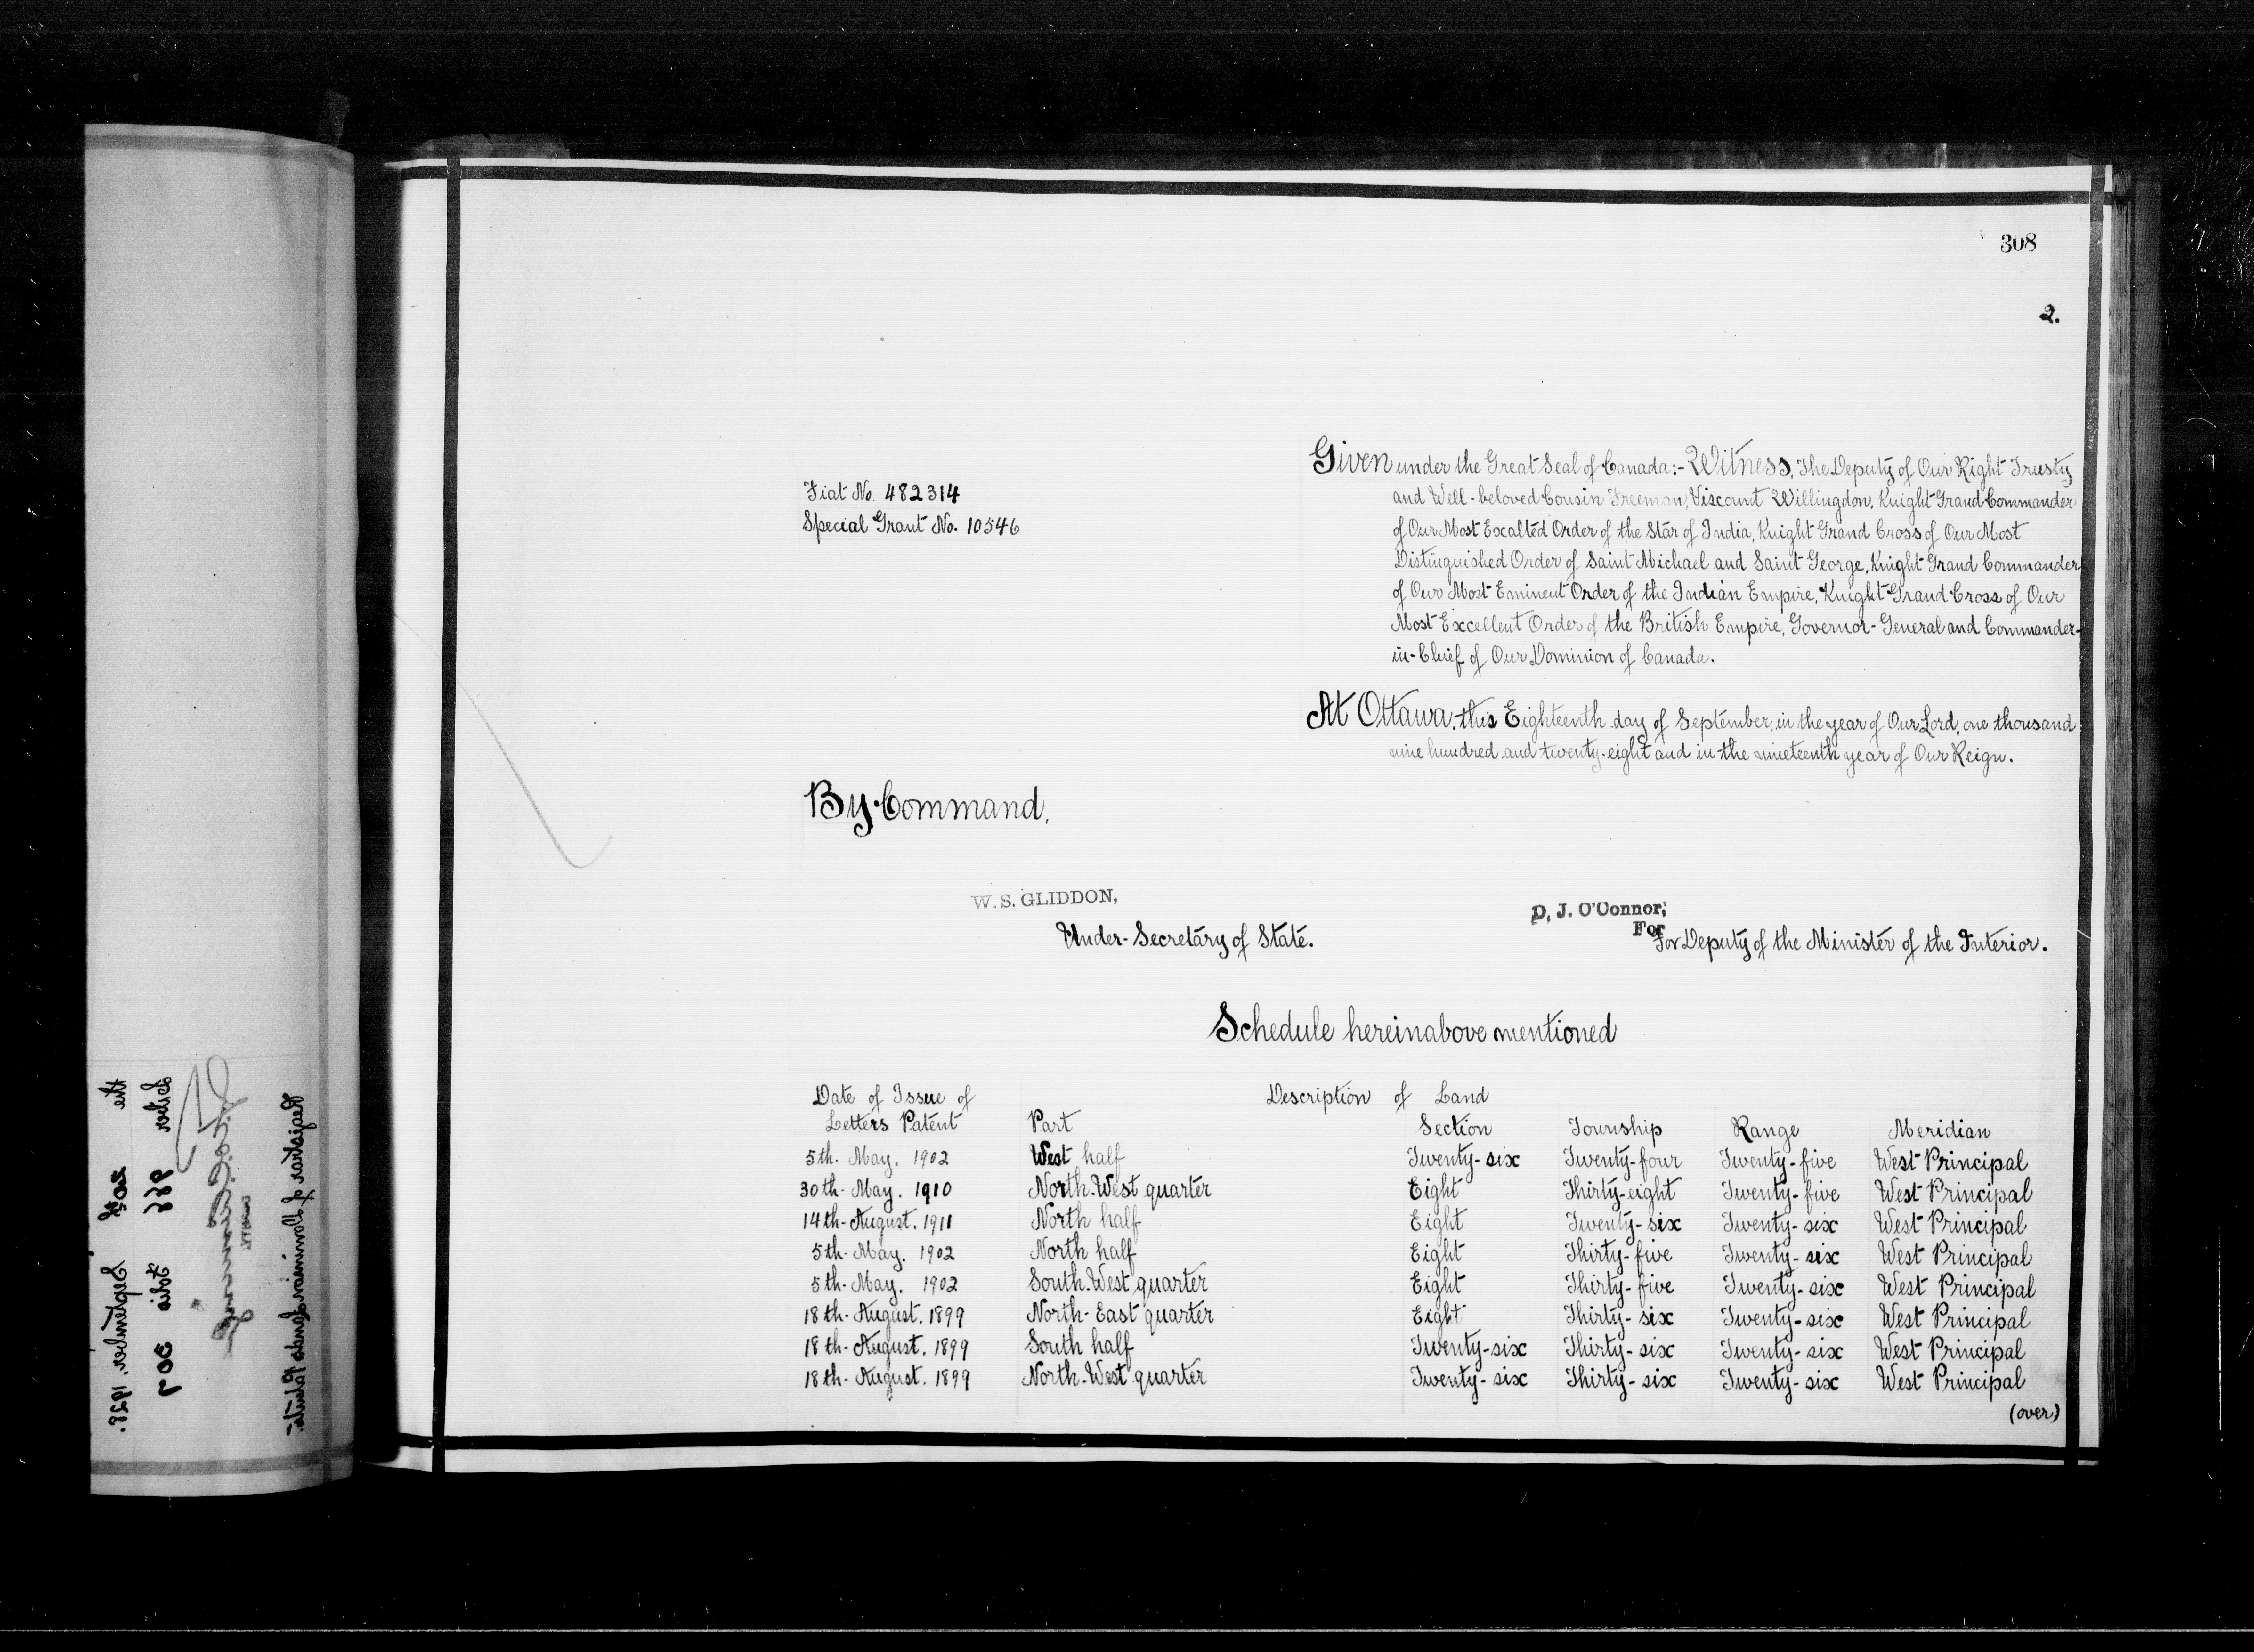 308
2.
Fiat No. 482314
Special Grant No. 10546
Given under the Great Seal of Canada:- Witness, The Deputy of Our Right Trusty
and Well-beloved Cousin Freeman, Viscount Willingdon, Knight Grand Commander
of Our Most Exalted Order of the Star of India, Knight Grand Cross of Our Most
Distinguished Order of Saint Michael and Saint George, Knight Grand Commander
of Our Most Eminent Order of the Indian Empire, Knight Grand Cross of Our
Most Excellent Order of the British Empire, Governor-General and Commander-
in-Chief of Our Dominion of Canada.
At Ottawa, this Eighteenth day of September, in the year of Our Lord, one thousand
nine hundred and twenty-eight and in the nineteenth year of Our Reign.
By Command,
W. S. GLIDDON,
Under-Secretary of State.
D. J. O'Connor,
For
For Deputy of the Minister of the Interior.
Schedule hereinabove mentioned
Date of Issue of Description of Land
Letters Patent Part Section Township Range Meridian
5th. May. 1902 West half Twenty-six Twenty-four Twenty-five West Principal
30th. May. 1910 North-West quarter Eight Thirty-eight Twenty-five West Principal
14th. August. 1911 North half Eight Twenty-six Twenty-six West Principal
5th. May. 1902 North half Eight Thirty-five Twenty-six West Principal
5th. May. 1902 South-West quarter Eight Thirty-five Twenty-six West Principal
18th. August. 1899 North-East quarter Eight Thirty-six Twenty-six West Principal
18th. August. 1899 South half Twenty-six Thirty-six Twenty-six West Principal
18th. August. 1899 North-West quarter Twenty-six Thirty-six Twenty-six West Principal
(over)
September, 1928.
Folio 307
Registrar of Dominion Lands Patents.